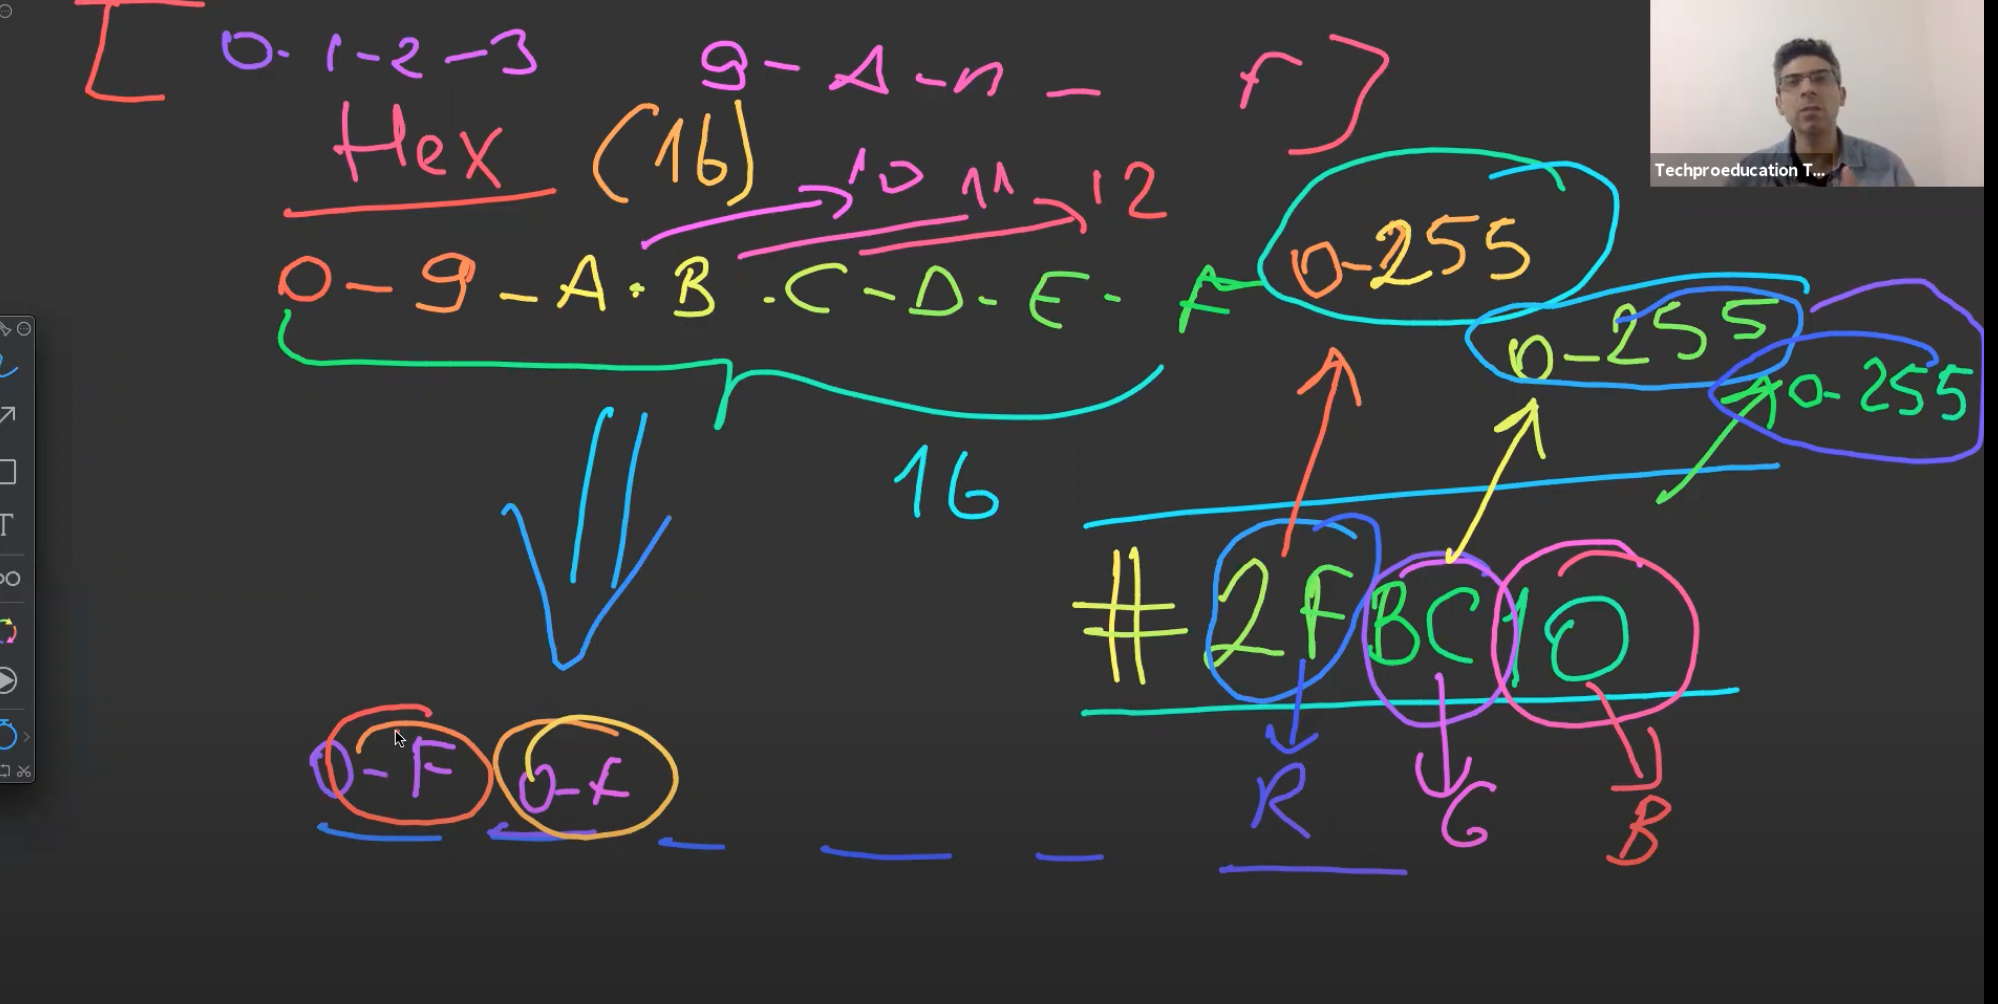 0-1-2-3 9-A-n- F
Hex (16)
10 11 12
0-9-A.B.C-D-E-F
0-255
0-255
0-255
16
#2FBC10
R G B
0-F 0-F
Techproeducation T...
T